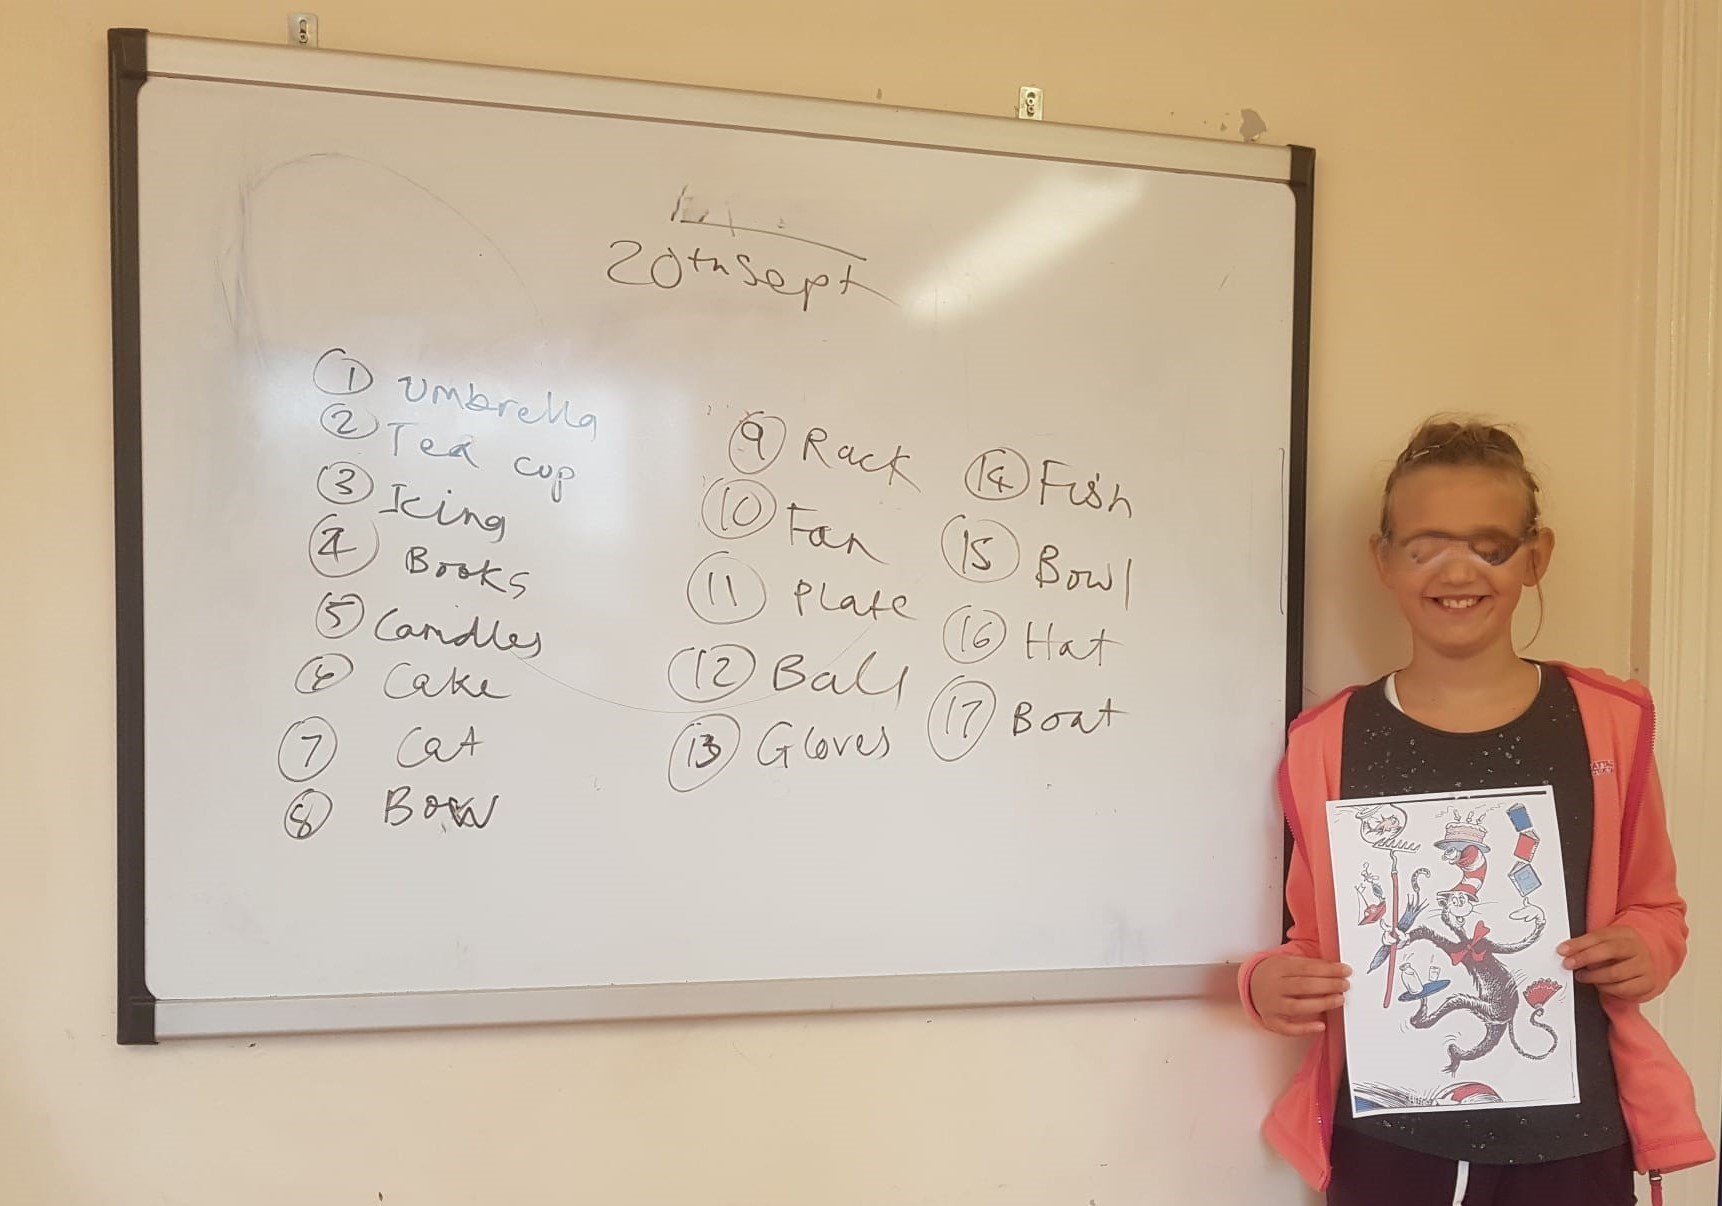 20th Sept
1 Umbrella
2 Tea cup
3 Icing
4 Books
5 Candles
6 Cake
7 Cat
8 Bow
9 Rack
10 Fan
11 Plate
12 Ball
13 Gloves
14 Fish
15 Bowl
16 Hat
17 Boat